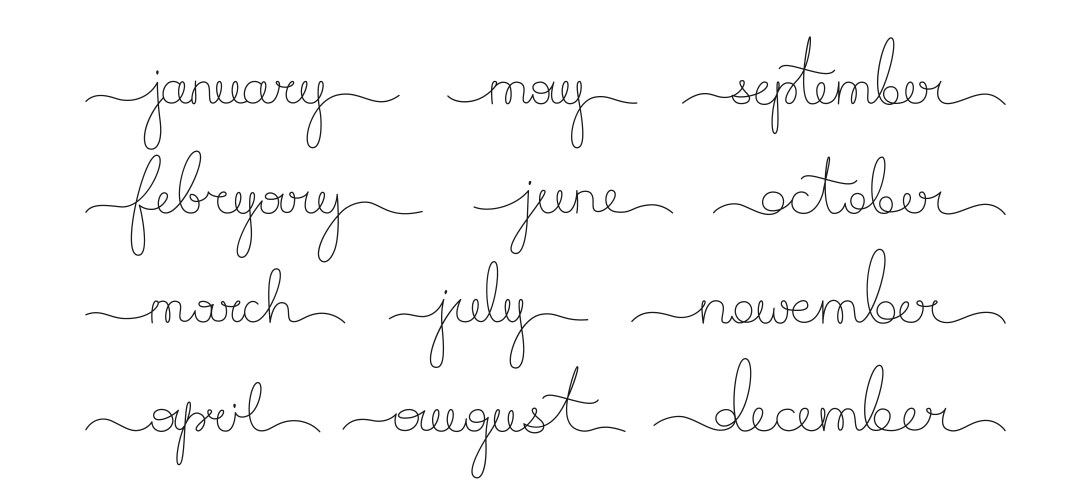 january may september
febryary june october
march july november
april august december